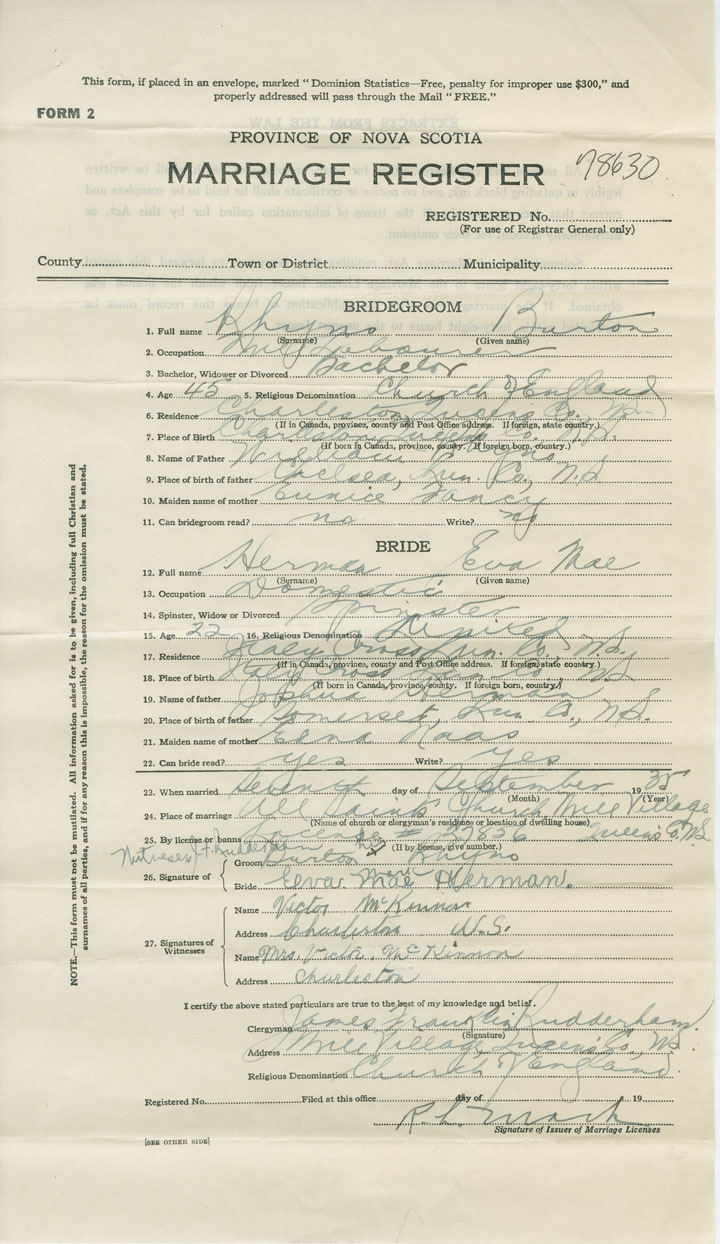 This form, if placed in an envelope, marked "Dominion Statistics—Free, penalty for improper use $300," and
properly addressed will pass through the Mail "FREE."
FORM 2
PROVINCE OF NOVA SCOTIA
MARRIAGE REGISTER 78630
REGISTERED No.
(For use of Registrar General only)
County Town or District Municipality
BRIDEGROOM
1. Full name Rhyno Burton
(Surname) (Given name)
2. Occupation Mill Labourer
3. Bachelor, Widower or Divorced Bachelor
4. Age 45 5. Religious Denomination Church of England
6. Residence Charleston Queens Co., N.S.
(If in Canada, province, county and Post Office address. If foreign, state country.)
7. Place of Birth Charleston Queens Co. N.S.
(If born in Canada, province, county. If foreign born, country.)
8. Name of Father William Rhyno
9. Place of birth of father Chelsea, Lun. Co., N.S
10. Maiden name of mother Eunice Fancy
11. Can bridegroom read? no Write? no
BRIDE
12. Full name Herman Eva Mae
(Surname) (Given name)
13. Occupation Domestic
14. Spinster, Widow or Divorced Spinster
15. Age 22 16. Religious Denomination Baptist
17. Residence Italy Cross Lun. Co., N.S.
(If in Canada, province, county and Post Office address. If foreign, state country.)
18. Place of birth Italy Cross Lun. Co. N.S
(If born in Canada, province, county. If foreign born, country.)
19. Name of father Joshua Herman
20. Place of birth of father Somerset, Lun Co., N.S.
21. Maiden name of mother Edna
22. Can bride read? yes Write? yes
23. When married Seventh day of September 1935
(Month) (Year)
24. Place of marriage All Saints Church Mill Village
(Name of church or clergyman's residence or location of dwelling house)
25. By license or banns License # 27856 Queens Co. N.S
(If by license, give number.)
Witness J. F. Rudderham
his
26. Signature of Groom Burton X Rhyno
mark
Bride Eva Mae Herman.
27. Signatures of Witnesses
Name Victor McKinnon
Address Charleston N.S.
Name Mrs. Victor McKinnon
Address Charleston
I certify the above stated particulars are true to the best of my knowledge and belief.
Clergyman James Franklin Rudderham
(Signature)
Address Mill Village, Queens Co, N.S.
Religious Denomination Church of England
Registered No. Filed at this office day of 19
R L
Signature of Issuer of Marriage Licenses
[SEE OTHER SIDE]
NOTE.—This form must not be mutilated. All information asked for is to be given, including full Christian and
surnames of all parties, and if for any reason this is impossible, the reason for the omission must be stated.